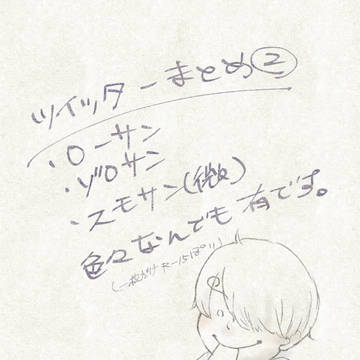 ツイッターまとめ②
・ローサン
・ゾロサン
・スモサン(微)
色々なんでも有です。
(一枚だけR-15ぽい)